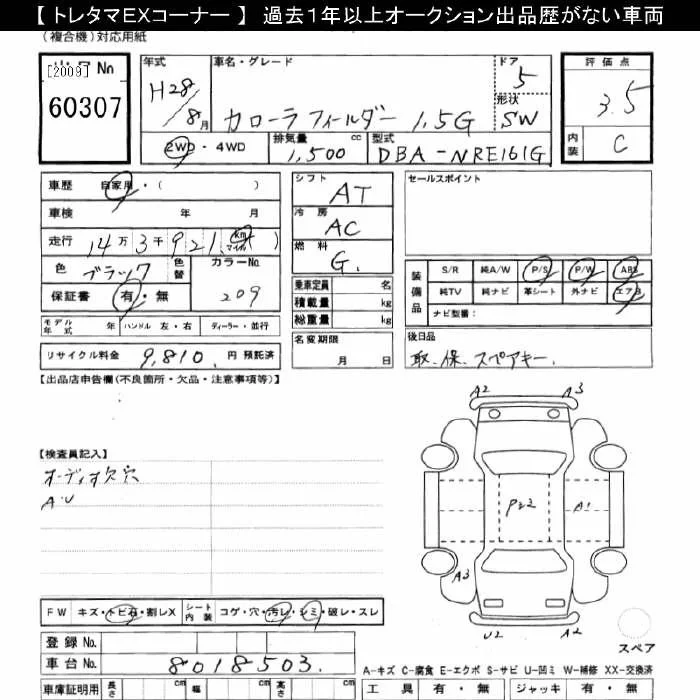 【 トレタマＥＸコーナー 】 過去１年以上オークション出品歴がない車両
（複合機）対応用紙
[2009] No
60307
年式 H28/8月
車名・グレード カローラ フィールダー 1.5G
ドア 5
形状 SW
評価点 3.5
内装 C
2WD・4WD
排気量 1,500 cc
型式 DBA-NRE161G
車歴 自家用・（ ）
車検 年 月
走行 14万3千921 km マイル ( )
色 ブラック 色替
カラーNo. 209
保証書 有・無
モデル年式 年 ハンドル 左・右 ディーラー・並行
リサイクル料金 9,810. 円 預託済
シフト AT
冷房 AC
燃料 G.
乗車定員 名
積載量 kg
総重量 kg
名変期限 月 日
セールスポイント
装備品 S/R 純A/W P/S P/W ABS
純TV 純ナビ 革シート 外ナビ エアB
ナビ型番：
後日品
取.保.スペアキー.
【出品店申告欄（不良箇所・欠品・注意事項等）】
【検査員記入】
オーディオ欠穴
A・U
A2 A3
A1
A3
U2 A2
スペア
FW キズ・トビ石・割レX シート内装 コゲ・穴・汚レ・シミ・破レ・スレ
登録No.
車台No. 8018503.
A-キズ C-腐食 E-エクボ S-サビ U-凹ミ W-補修 XX-交換済
車庫証明用 長さ cm 幅 cm 高さ cm
工具 有・無 ジャッキ 有・無